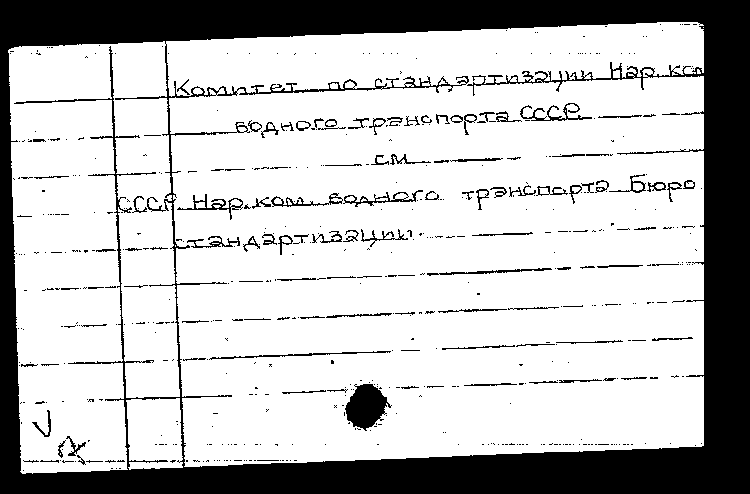 Комитет по стандартизации Нар. ком
водного транспорта СССР
см
СССР. Нар. ком. водного транспорта Бюро
стандартизации.